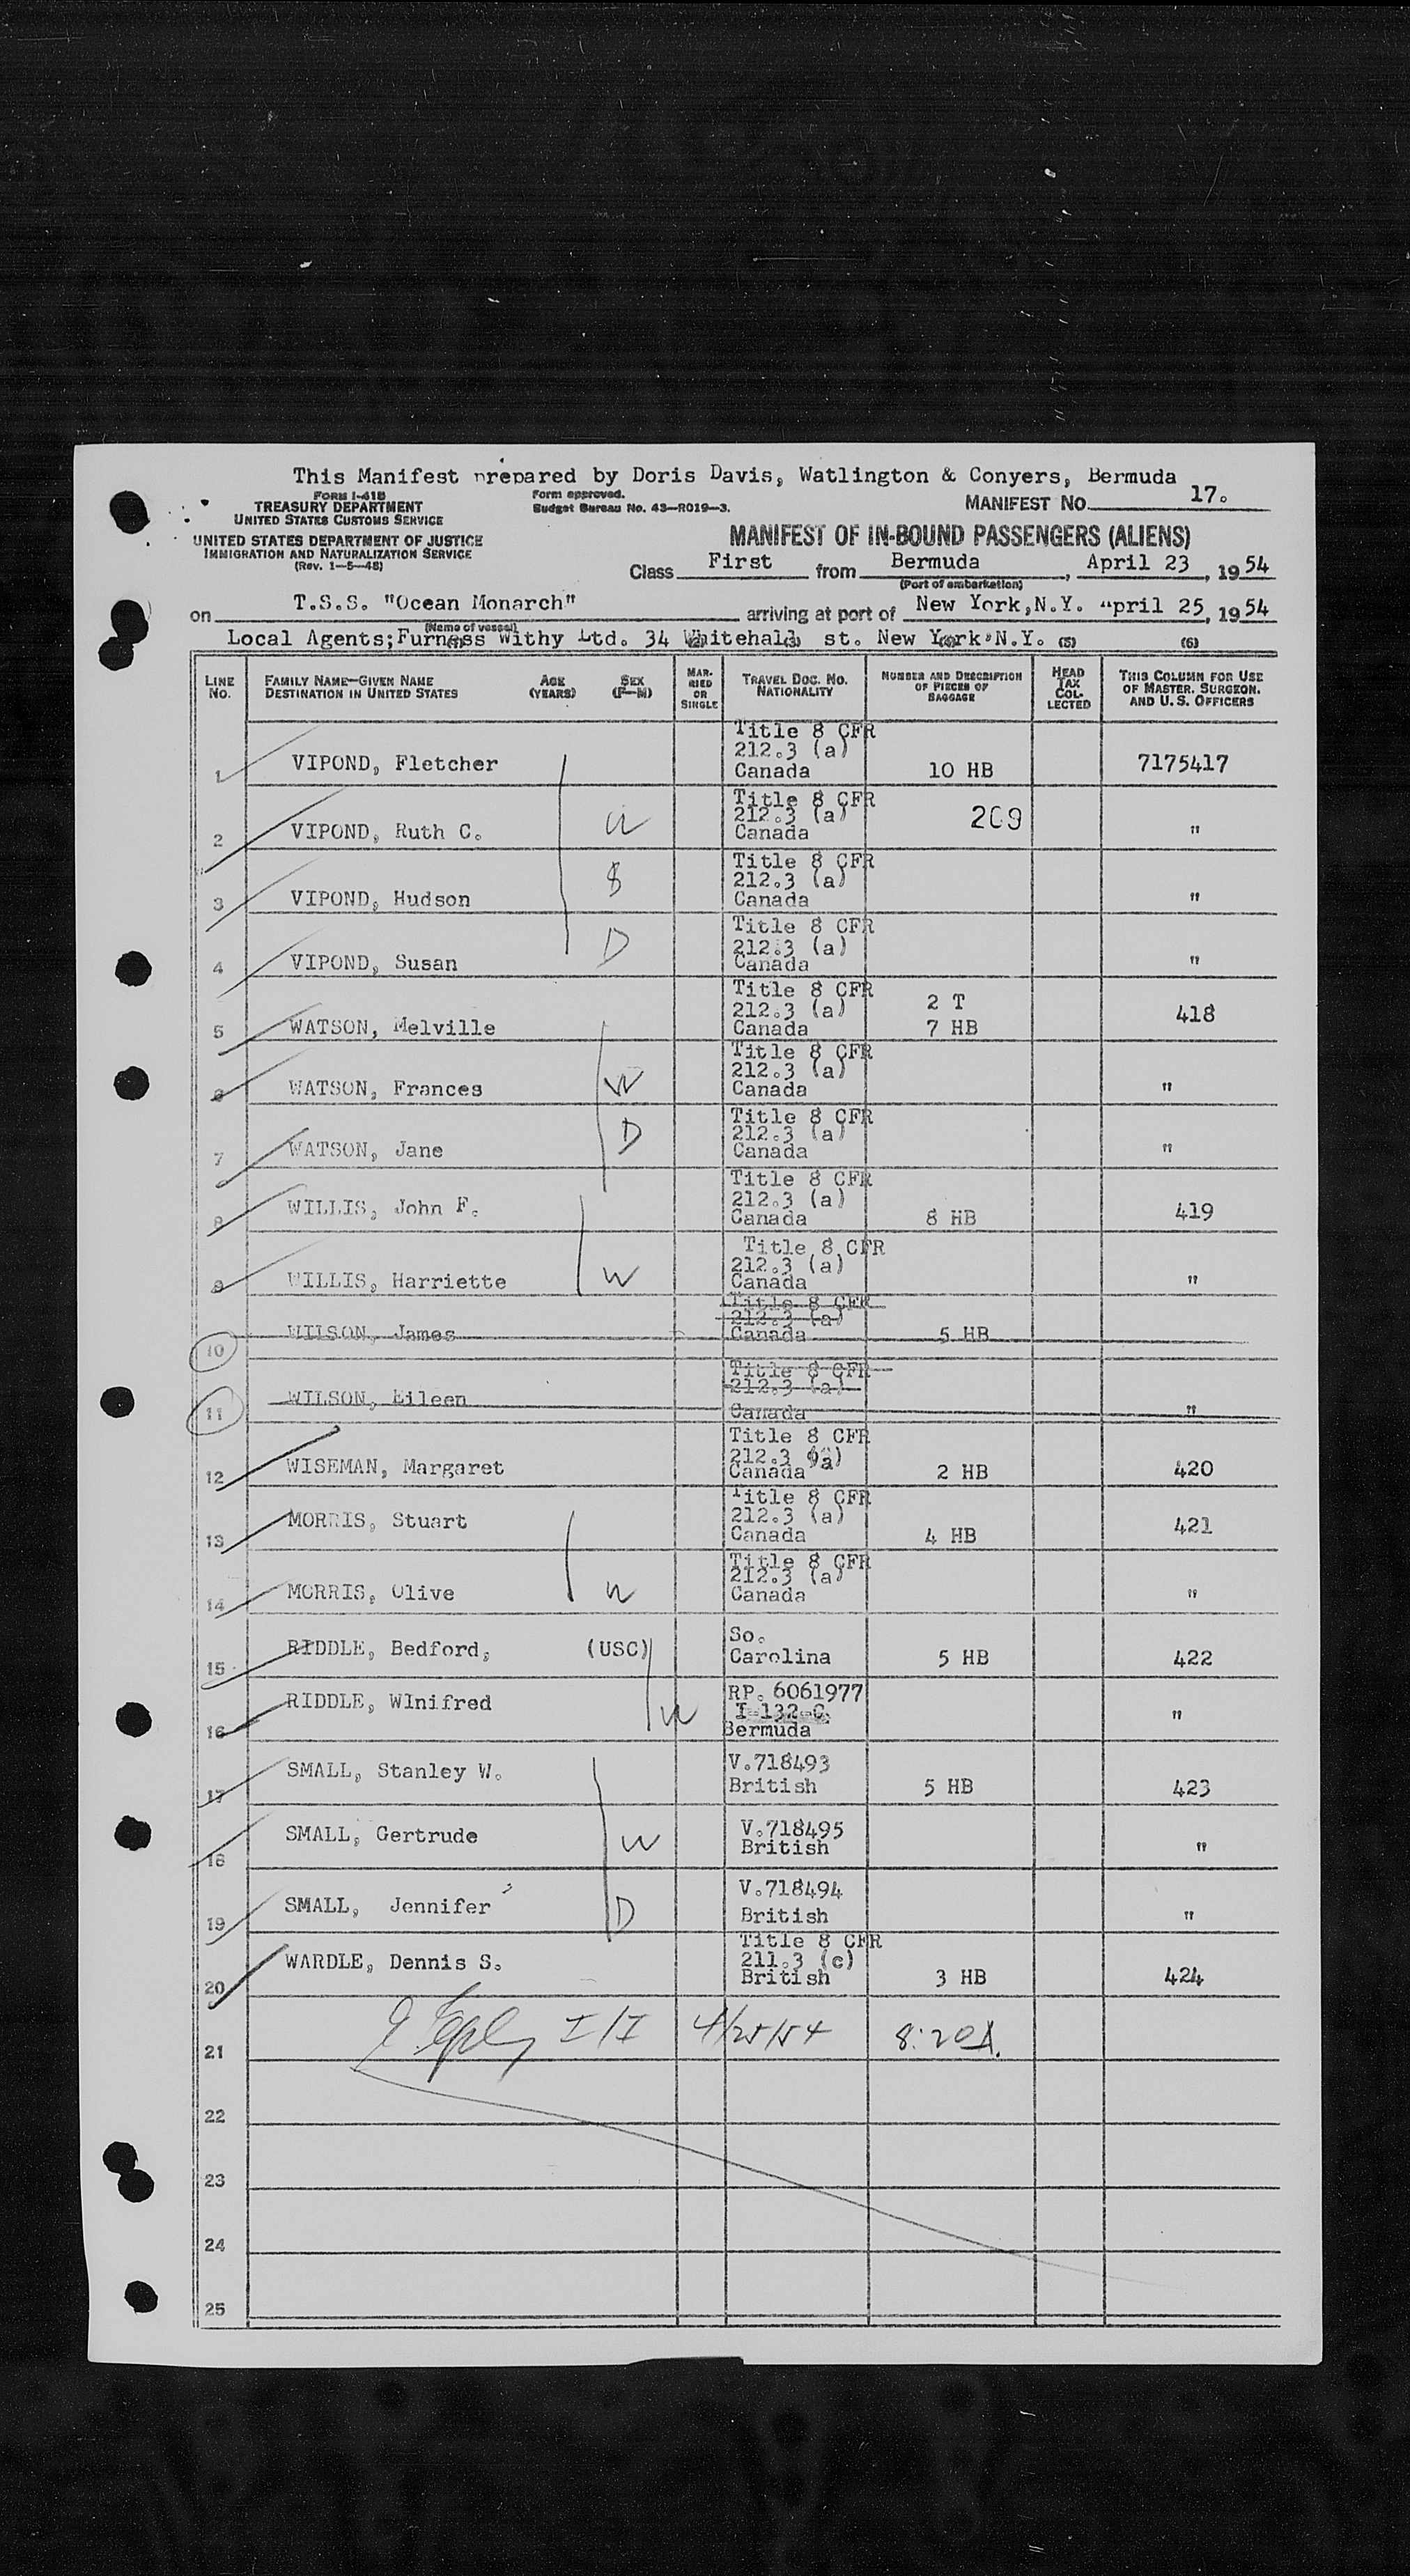 This Manifest prepared by Doris Davis, Watlington & Conyers, Bermuda
FORM I-418
TREASURY DEPARTMENT
UNITED STATES CUSTOMS SERVICE
Form approved.
Budget Bureau No. 43—R019—3.
MANIFEST NO. 17.
UNITED STATES DEPARTMENT OF JUSTICE
IMMIGRATION AND NATURALIZATION SERVICE
(Rev. 1—5—48)
MANIFEST OF IN-BOUND PASSENGERS (ALIENS)
Class First from Bermuda, April 23, 1954
(Port of embarkation)
on T.S.S. "Ocean Monarch" arriving at port of New York,N.Y. April 25, 1954
(Name of vessel)
Local Agents;Furness Withy Ltd. 34 Whitehall st. New York.N.Y. (5) (6)
LINE NO. FAMILY NAME—GIVEN NAME DESTINATION IN UNITED STATES AGE (YEARS) SEX (F—M) MARRIED OR SINGLE TRAVEL DOC. NO. NATIONALITY NUMBER AND DESCRIPTION OF PIECES OF BAGGAGE HEAD TAX COLLECTED THIS COLUMN FOR USE OF MASTER, SURGEON, AND U. S. OFFICERS
1 VIPOND, Fletcher Title 8 CFR 212.3 (a) Canada 10 HB 7175417
2 VIPOND, Ruth C. W Title 8 CFR 212.3 (a) Canada 209 "
3 VIPOND, Hudson S Title 8 CFR 212.3 (a) Canada "
4 VIPOND, Susan D Title 8 CFR 212.3 (a) Canada "
5 WATSON, Melville Title 8 CFR 212.3 (a) Canada 2 T 7 HB 418
6 WATSON, Frances W Title 8 CFR 212.3 (a) Canada "
7 WATSON, Jane D Title 8 CFR 212.3 (a) Canada "
8 WILLIS, John F. Title 8 CFR 212.3 (a) Canada 8 HB 419
9 WILLIS, Harriette W Title 8 CFR 212.3 (a) Canada "
10 WILSON, James Title 8 CFR 212.3 (a) Canada 5 HB
11 WILSON, Eileen Title 8 CFR 212.3 (a) Canada "
12 WISEMAN, Margaret Title 8 CFR 212.3 (a) Canada 2 HB 420
13 MORRIS, Stuart Title 8 CFR 212.3 (a) Canada 4 HB 421
14 MORRIS, Olive W Title 8 CFR 212.3 (a) Canada "
15 RIDDLE, Bedford, (USC) So. Carolina 5 HB 422
16 RIDDLE, WInifred W RP. 6061977 I-132-C. Bermuda "
17 SMALL, Stanley W. V.718493 British 5 HB 423
18 SMALL, Gertrude W V.718495 British "
19 SMALL, Jennifer D V.718494 British "
20 WARDLE, Dennis S. Title 8 CFR 211.3 (c) British 3 HB 424
21 I/I 4/25/54 8:20A.
22
23
24
25